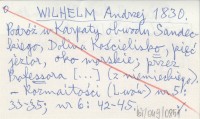 WILHELM Andrzej 1830.
Podróż w Karpaty obwodu Sandec-
kiego, Dolina Kościelisko, pięć
jezior, oko morskie; przez
Professora [...] (z niemieckiego).
- Rozmaitości (Lwów) nr 5:
33-35; nr 6: 42-45.